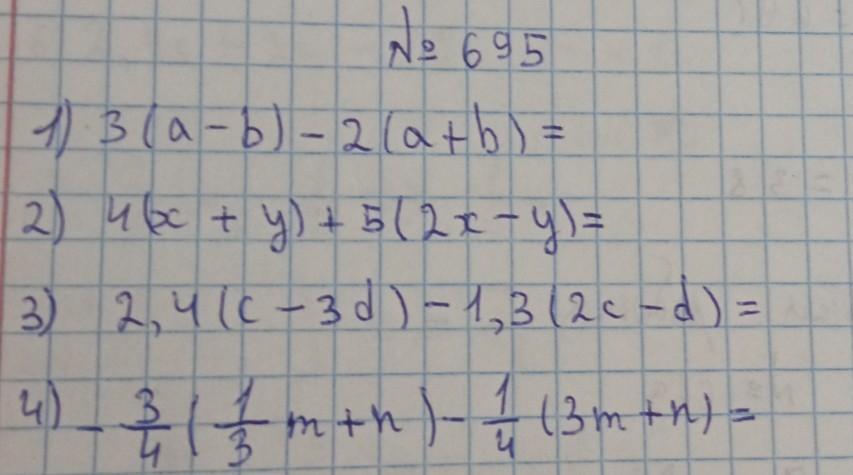 № 695
1) 3(a - b) - 2(a + b) =
2) 4(x + y) + 5(2x - y) =
3) 2,4(c - 3d) - 1,3(2c - d) =
4) - 3/4 (1/3 m + n) - 1/4 (3m + n) =